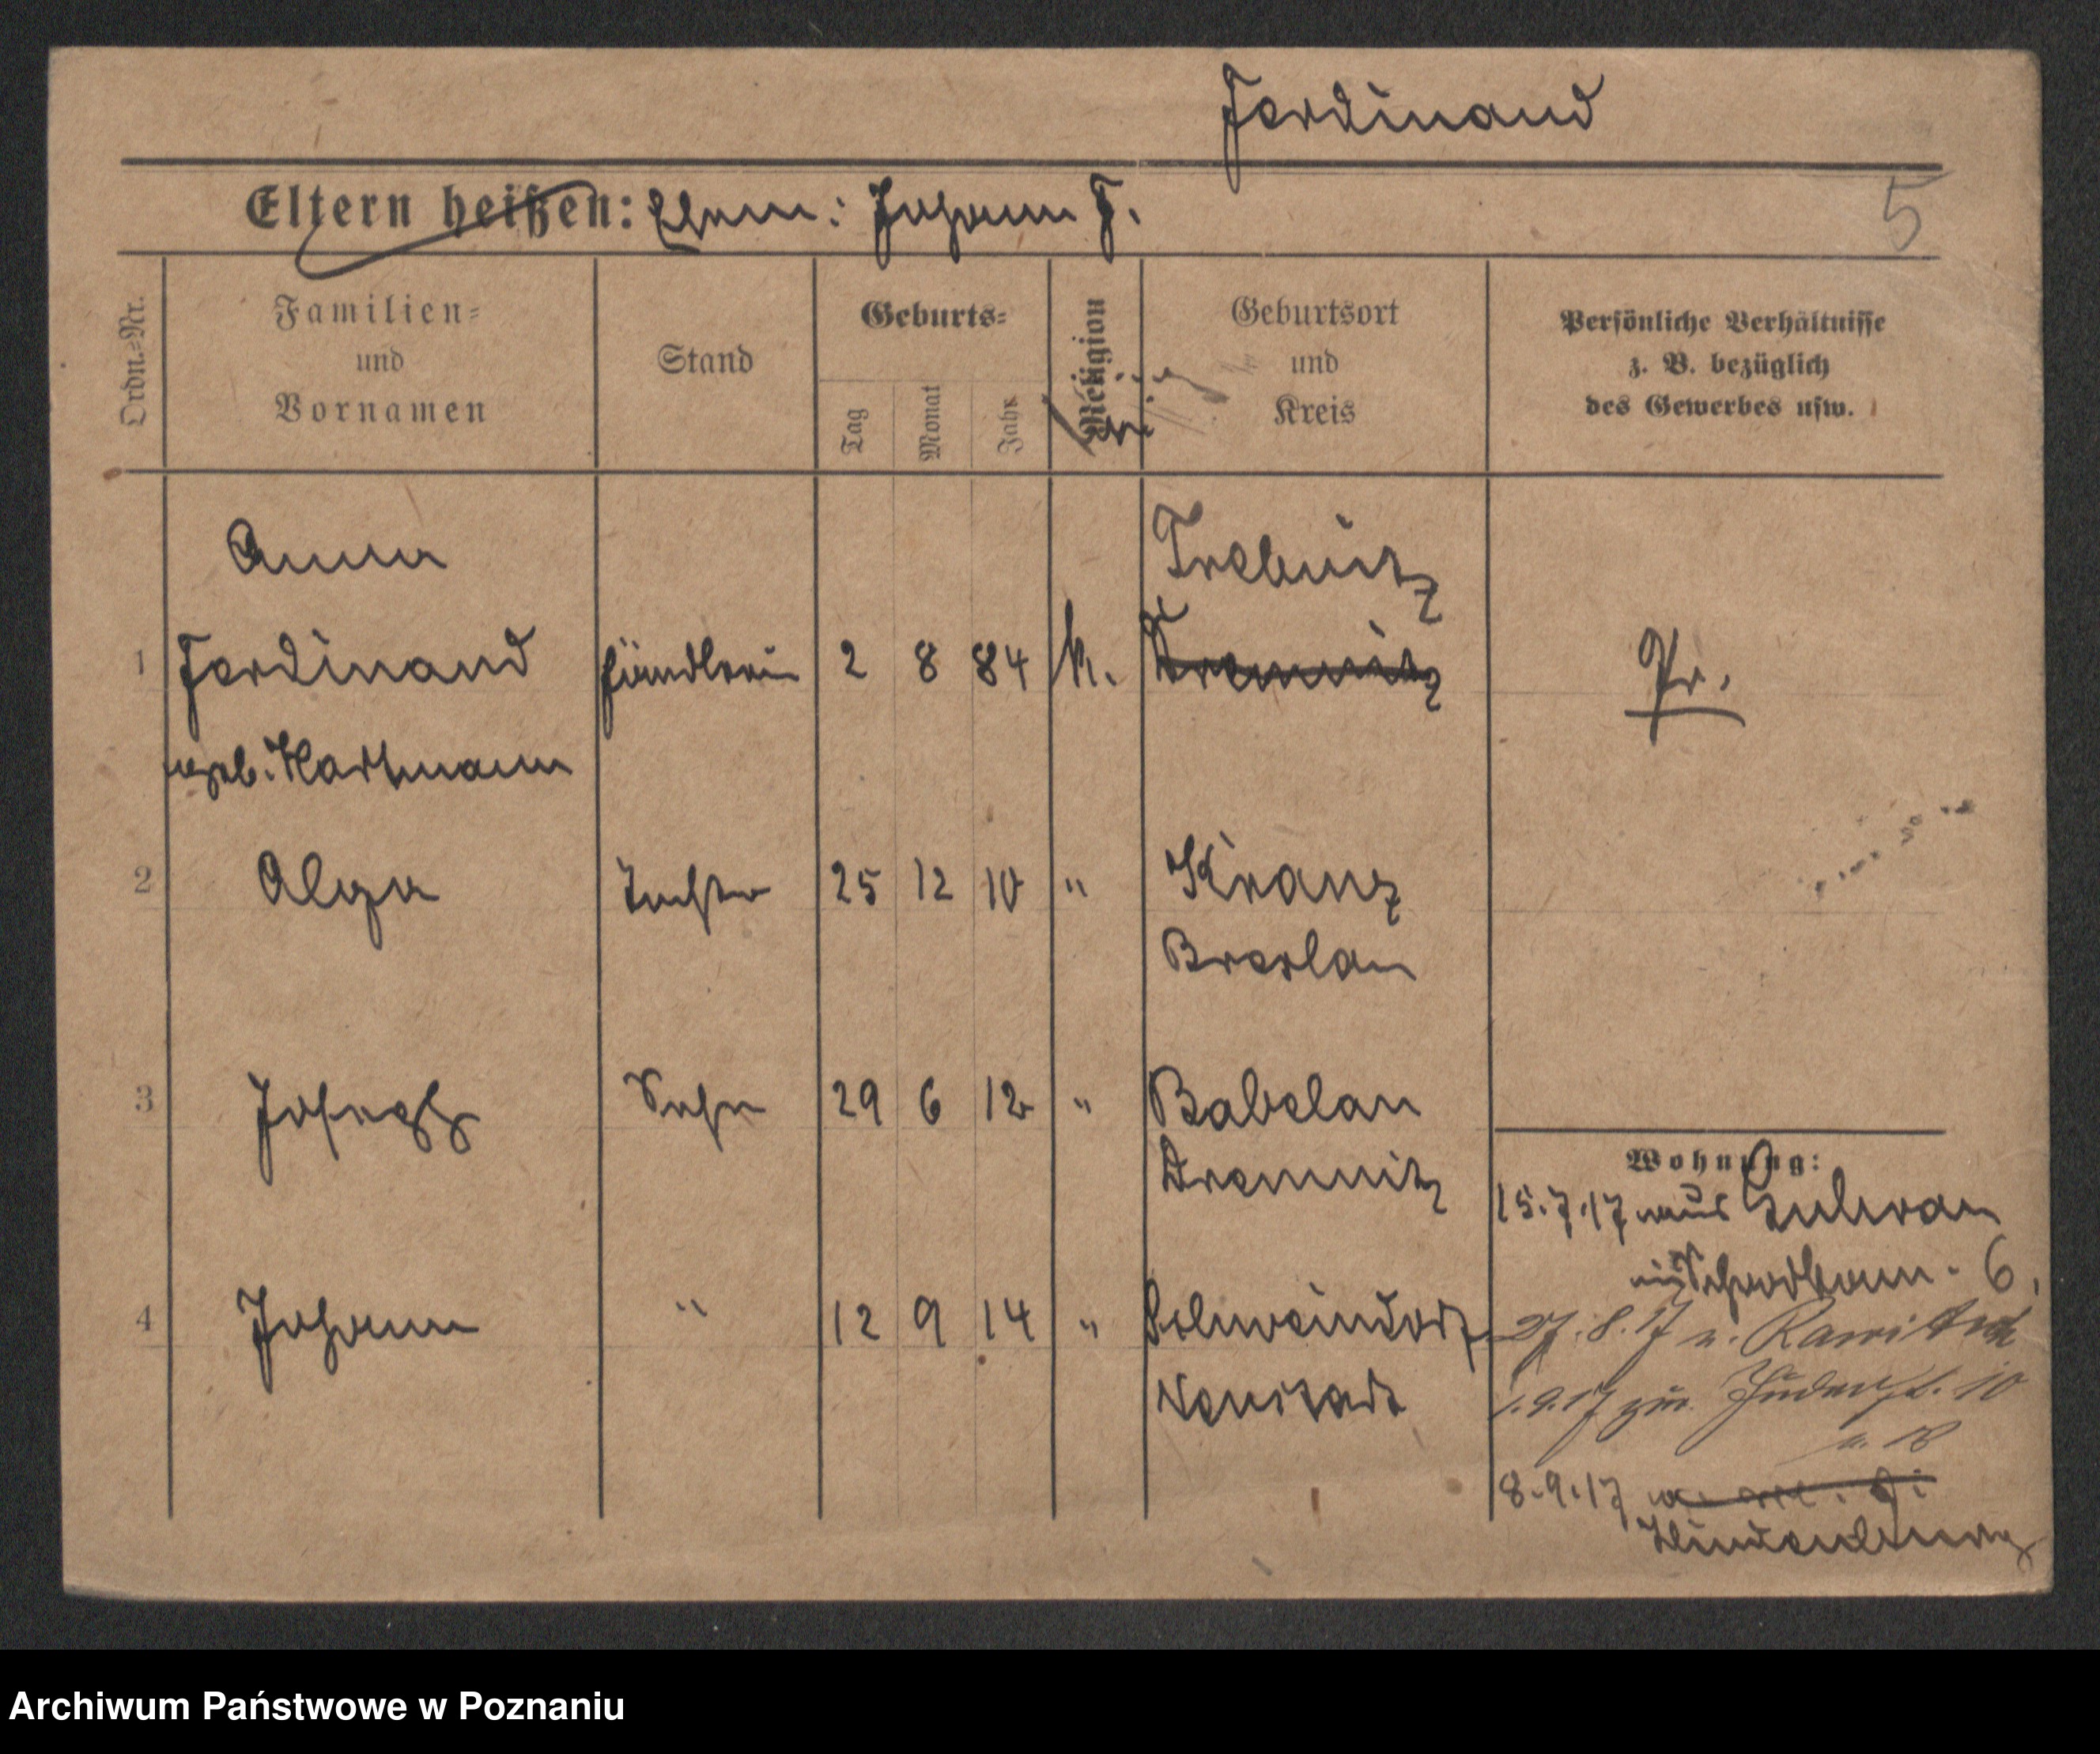 Ferdinand
Eltern heißen: Ehem: Johann F.
5
Ordn.-Nr.
Familien- und Vornamen
Stand
Geburts-
Tag
Monat
Jahr
Religion
Geburtsort und Kreis
Persönliche Verhältnisse
z. B. bezüglich
des Gewerbes usw.
Anna
Trebnitz
1 Ferdinand Händlerin 2 8 84 k. Pr.
geb. Hartmann
2 Olga Tochter 25 12 10 " Kranz
Breslau
3 Joseph Sohn 29 6 12 " Babelau
Dremnitz
4 Johann " 12 9 14 "
Neustadt
Wohnung:
15.7.17 aus
6.
27.8.17 n. Rawitsch
1.9.17 zur. Judenstr. 10
8.9.17
Hindenburg
Archiwum Państwowe w Poznaniu